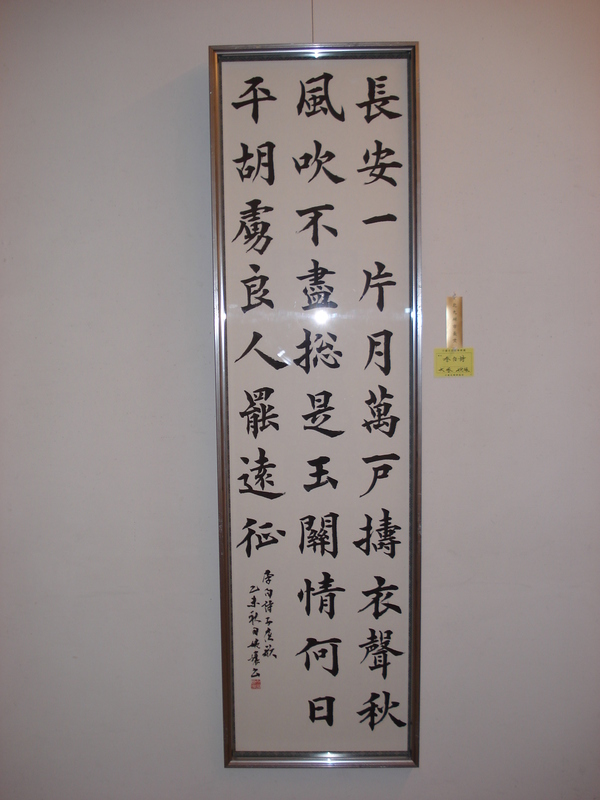 長安一片月萬戸擣衣聲秋
風吹不盡捴是玉關情何日
平胡虜良人罷遠征
李白詩子夜歌
乙未秋日